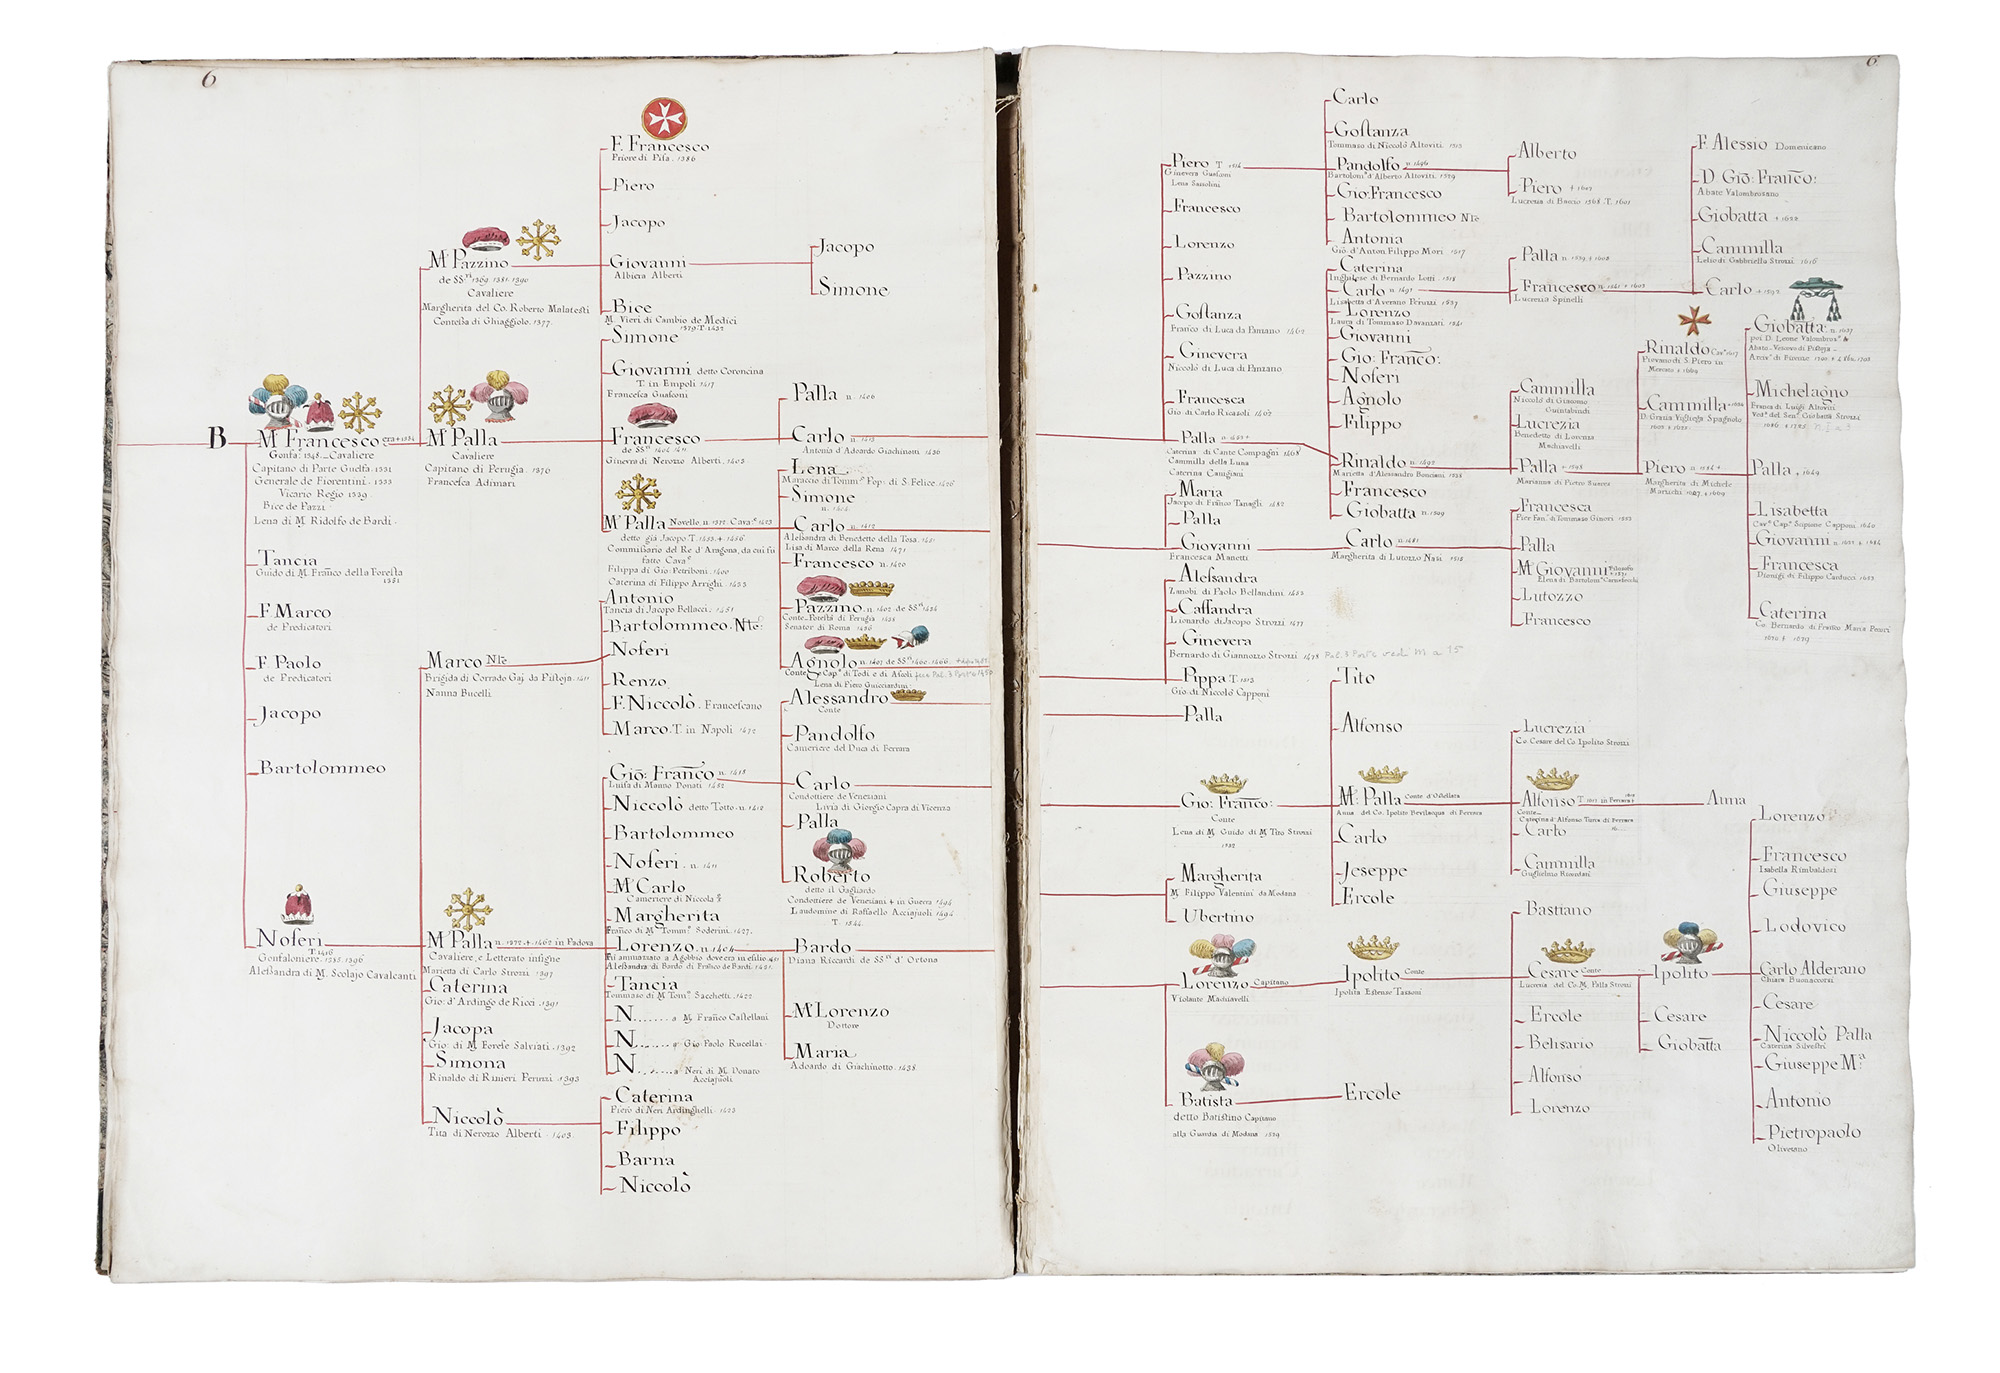 6
B
Mr Francesco era + 1384
Gonfo. 1348. Cavaliere
Capitano di Parte Guelfa. 1331
Generale de Fiorentini. 1333
Vicario Regio 1339
Bice de Pazzi
Lena di M. Ridolfo de Bardi.
Tancia
Guido di M. Franco della Foresta
1351
F. Marco
de Predicatori
F. Paolo
de Predicatori
Jacopo
Bartolommeo
Noferi
T. 1416
Gonfaloniere. 1385. 1396
Alessandra di M. Scolajo Cavalcanti
Mr Pazzino
de SSri 1369 1381. 1390
Cavaliere
Margherita del Co. Roberto Malatesti
Contessa di Ghiaggiolo. 1377.
Mr Palla
Cavaliere
Capitano di Perugia. 1376
Francesca Adimari
Marco Nle
Brigida di Corrado Gaj da Pistoja. 1411
Nanna Bucelli.
Mr Palla n. 1372. + 1462 in Padova
Cavaliere, e Letterato insigne
Marietta di Carlo Strozzi. 1397
Caterina
Gio: d'Ardingo de Ricci. 1391
Jacopa
Gio: di M. Forese Salviati. 1392
Simona
Rinaldo di Rinieri Peruzzi. 1393
Niccolò
Tita di Nerozzo Alberti. 1403.
F. Francesco
Priore di Pisa. 1386
Piero
Jacopo
Giovanni
Albiera Alberti
Bice
M. Vieri di Cambio de Medici
1379. T. 1432
Simone
Giovanni detto Coroncina
T. in Empoli 1417
Francesca Guasconi
Francesco
de SSri 1404 1411
Ginevra di Nerozzo Alberti. 1403
Mr Palla Novello n. 1372. Cavae. 1423
detto già Jacopo T. 1433. + 1456
Commissario del Re d'Aragona, da cui fu
fatto Cave
Filippa di Gio: Petriboni. 1400
Caterina di Filippo Arrighi. 1433
Antonio
Tancia di Jacopo Bellacci. 1451
Bartolommeo. Nle:
Noferi
Renzo
F. Niccolò. Francescano
Marco. T. in Napoli 1472
Gio: Franco n. 1418
Luisa di Manno Donati 1452
Niccolò detto Totto. n. 1412
Bartolommeo
Noferi. n. 1411
Mr Carlo
Cameriere di Niccola
Margherita
Franco di M. Tommo. Soderini. 1427.
Lorenzo. n. 1404
Fù ammazzato a Agobbio dove era in esilio
Alessandra di Bardo di Franco de Bardi. 1431.
Tancia
Tommaso di M. Tomo. Sacchetti. 1422
N....... a M. Franco Castellani
N....... a Gio: Paolo Rucellai
N....... a Neri di M. Donato
Acciajuoli
Caterina
Piero di Neri Ardinghelli. 1423
Filippo
Barna
Niccolò
Jacopo
Simone
Palla n. 1406
Carlo n. 1413
Antonia d'Adoardo Giachinotti. 1436
Lena
Maraccio di Tommo. Pop: di S. Felice. 1426
Simone
Carlo n. 1412
Alessandra di Benedetto della Tosa. 1431
Lisa di Marco della Rena 1471
Francesco n. 1420
Pazzino. n. 1402. de SSri 1434
Conte Potestà di Perugia 1435
Senator di Roma 1436
Agnolo n. 1407 de SSri 1460. 1466.
Conte Capo di Todi e di Ascoli
Lena di Piero Guicciardini
Alessandro
Conte
Pandolfo
Cameriere del Duca di Ferrara
Carlo
Condottiere de Veneziani
Livia di Giorgio Capra di Vicenza
Palla
Roberto
detto il Gagliardo
Condottiere de Veneziani + in Guerra 1494
Laudomine di Raffaello Acciajuoli. 1494
T. 1544
Bardo
Diana Riccardi de SSri d'Ortona
Mr Lorenzo
Dottore
Maria
Adoardo di Giachinotto. 1438.
6
Piero T. 1514
Ginevera Guasconi
Lena Sassolini
Francesco
Lorenzo
Pazzino
Gostanza
Franco di Luca da Panzano 1462
Ginevera
Niccolò di Luca di Panzano
Francesca
Gio: di Carlo Ricasoli 1462
Palla
Caterina di Cante Compagni 1468
Cammilla della Luna
Caterina Canigiani
Maria
Jacopo di Franco Tanagli 1482
Palla
Giovanni
Francesca Manetti
Alessandra
Zanobi di Paolo Bellandini. 1453
Cassandra
Lionardo di Jacopo Strozzi. 1477
Ginevera
Bernardo di Giannozzo Strozzi 1478
Pippa T. 1513
Gio: di Niccolò Capponi
Palla
Gio: Franco:
Conte
Lena di M. Guido di M. Tito Strozzi
Margherita
M. Filippo Valentini da Modana
Ubertino
Lorenzo Capitano
Violante Machiavelli
Batista
detto Batistino Capitano
alla Guardia di Modana 1529
Carlo
Gostanza
Tommaso di Niccolò Altoviti. 1513
Pandolfo n. 1496
Bartolomea d'Alberto Altoviti. 1529
Gio: Francesco
Bartolommeo Nle
Antonia
Gio: d'Anton Filippo Mori 1517
Caterina
Inghilese di Bernardo Lotti. 1518
Carlo n. 1491
Lisabetta d'Averano Peruzzi. 1537
Lorenzo
Laura di Tommaso Davanzati. 1541
Giovanni
Gio: Franco:
Noferi
Agnolo
Filippo
Rinaldo n. 1493
Marietta d'Alessandro Bonciani. 1538
Francesco
Giobatta n. 1509
Carlo n. 1481
Margherita di Lutozzo Nasi 1515
Tito
Alfonso
Mr Palla Conte d'Ostellata
Anna del Co. Ipolito Bevilacqua di Ferrara
Carlo
Jeseppe
Ercole
Ipolito Conte
Ipolita Estense Tassoni
Ercole
Alberto
Piero
Lucrezia di Baccio 1568. T. 1601
Palla n. 1539. + 1608
Francesco
Lucrezia Spinelli
Cammilla
Niccolò di Giacomo
Guintabindi
Lucrezia
Benedetto di Lorenzo
Machiavelli
Palla + 1598
Marianna di Pietro Suares
Francesca
Pier Fano. di Tommaso Ginori. 1553
Palla
Mr Giovanni Filosofo
Lutozzo
Francesco
Lucrezia
Co. Cesare del Co. Ipolito Strozzi.
Alfonso
Conte
Caterina d'Alfonso Turca di Ferrara
Carlo
Cammilla
Guglielmo Riccardi
Bastiano
Cesare Conte
Lucrezia del Co. M. Palla Strozzi
Ercole
Belisario
Alfonso
Lorenzo
F. Alessio Domenicano
D. Gio: Franco:
Abate Valombrosano
Giobatta + 1622
Cammilla
Lelio di Gabbriello Strozzi. 1616
Carlo + 1592
Rinaldo Cano. 1617
Piovano di S. Piero in
Mercato + 1669
Cammilla
D. Grazia Vigliega Spagnolo
Piero
Margherita di Michele
Anna
Ipolito
Cesare
Giobatta
Giobatta. n. 1637
poi D. Leone Valombroso. &
Abate. Vescovo di Pistoja
Michelagno
Franca di Luigi Altoviti
Palla + 1649
Lisabetta
Cave. Capo. Scipione Capponi. 1640
Giovanni
Francesca
Dionigi di Filippo Carducci. 1653
Caterina
Co. Bernardo di Franco Maria Pecori
Lorenzo
Francesco
Isabella Rimbaldesi
Giuseppe
Lodovico
Carlo Alderano
Chiara Buonaccorsi
Cesare
Niccolò Palla
Caterina Silvestri
Giuseppe Ma
Antonio
Pietropaolo
Olivetano